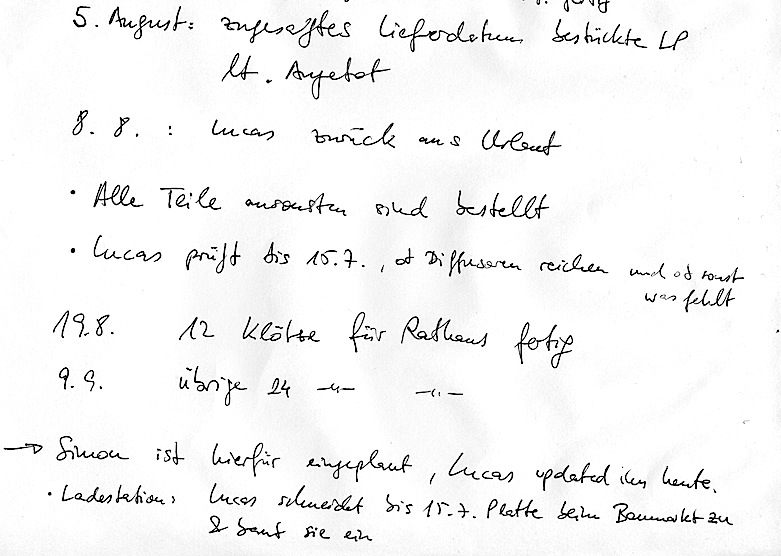 5. August: zugesagtes Lieferdatum bestückte LP
lt. Angebot
8. 8. : Lucas zurück aus Urlaub
· Alle Teile ansonsten sind bestellt
· Lucas prüft bis 15.7., ob Diffusoren reichen und ob sonst
was fehlt
19.8. 12 Klötze für Rathaus fertig
9.9. übrige 24 –"– –"–
→ Simon ist hierfür eingeplant, Lucas updated ihn heute.
· Ladestation: Lucas schneidet bis 15.7. Platte beim Baumarkt zu
& baut sie ein